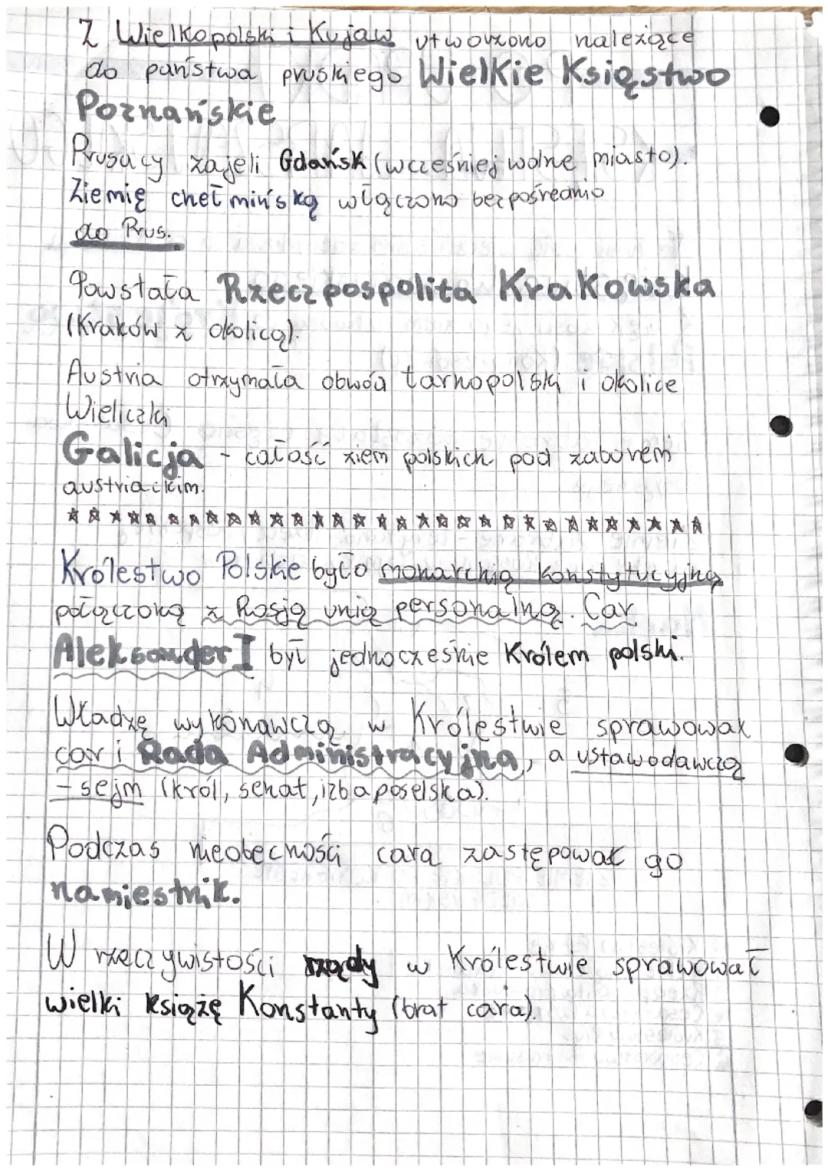 Z Wielkopolski i Kujaw utworzono należące
do państwa pruskiego Wielkie Księstwo
Poznańskie
Prusacy zajeli Gdańsk (wcześniej wolne miasto).
Ziemię chełmińską włączono bezpośrednio
do Prus.
Powstała Rzeczpospolita Krakowska
(Kraków z okolicą).
Austria otrzymała obwód tarnopolski i okolice
Wieliczki
Galicja - całość ziem polskich pod zaborem
austriackim.
Królestwo Polskie było monarchią konstytucyjną
połączoną z Rosją unią personalną. Car
Aleksander I był jednocześnie Królem polski.
Władzę wykonawczą w Królestwie sprawował
car i Rada Administracyjna, a ustawodawczą
- sejm (król, senat, izba poselska).
Podczas nieobecności cara zastępował go
namiestnik.
W rzeczywistości rządy w Królestwie sprawował
wielki książę Konstanty (brat cara).